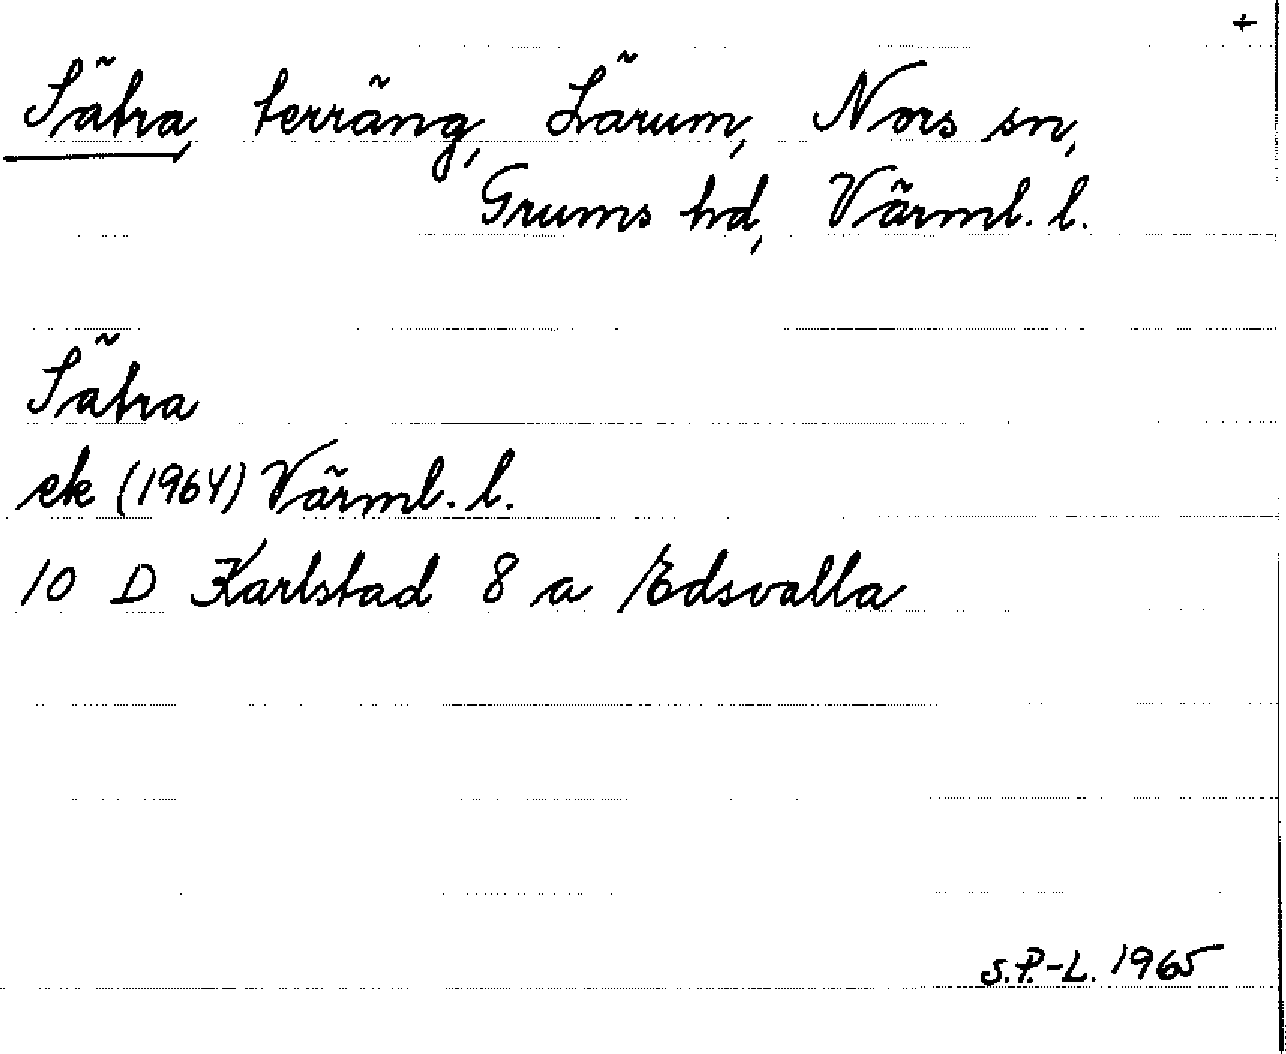 +
Sätra, terräng, Lärum, Nors sn,
Grums hd, Värml. l.
Sätra
ek (1964) Värml. l.
10 D Karlstad 8 a Edsvalla
S.P.-L. 1965